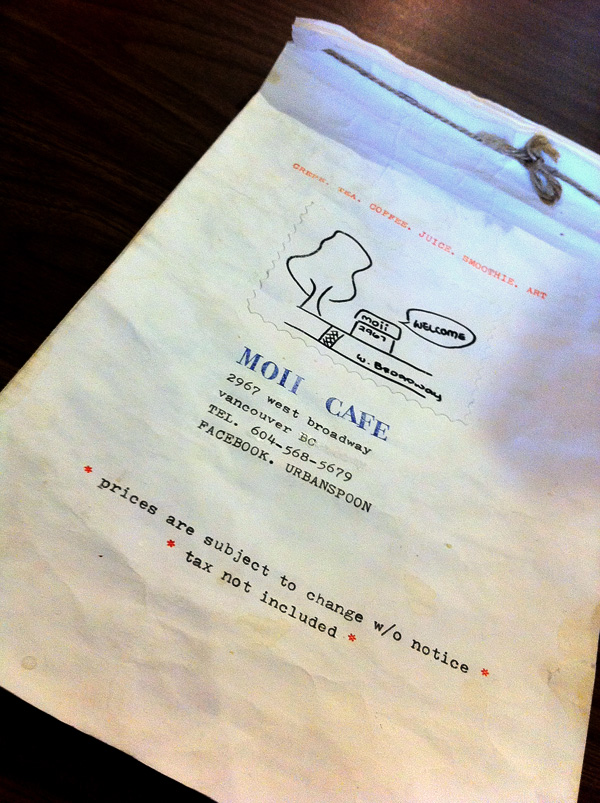 CREPE. TEA. COFFEE. JUICE. SMOOTHIE. ART
moii
2967
WELCOME
W. BROADWAY
MOII CAFE
2967 west broadway
vancouver BC
TEL. 604-568-5679
FACEBOOK. URBANSPOON
* prices are subject to change w/o notice *
* tax not included *